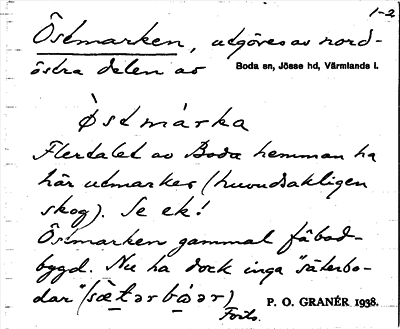 1-2
Östmarken, utgöres av nord-
östra delen av Boda sn, Jösse hd, Värmlands l.
Östmarka
Flertalet av Boda hemman ha
här utmarker (huvudsakligen
skog). Se ek!
Östmarken gammal fäbod-
bygd. Nu ha dock inga "säterbo-
dar"
P. O. GRANÉR 1938.
Forts.